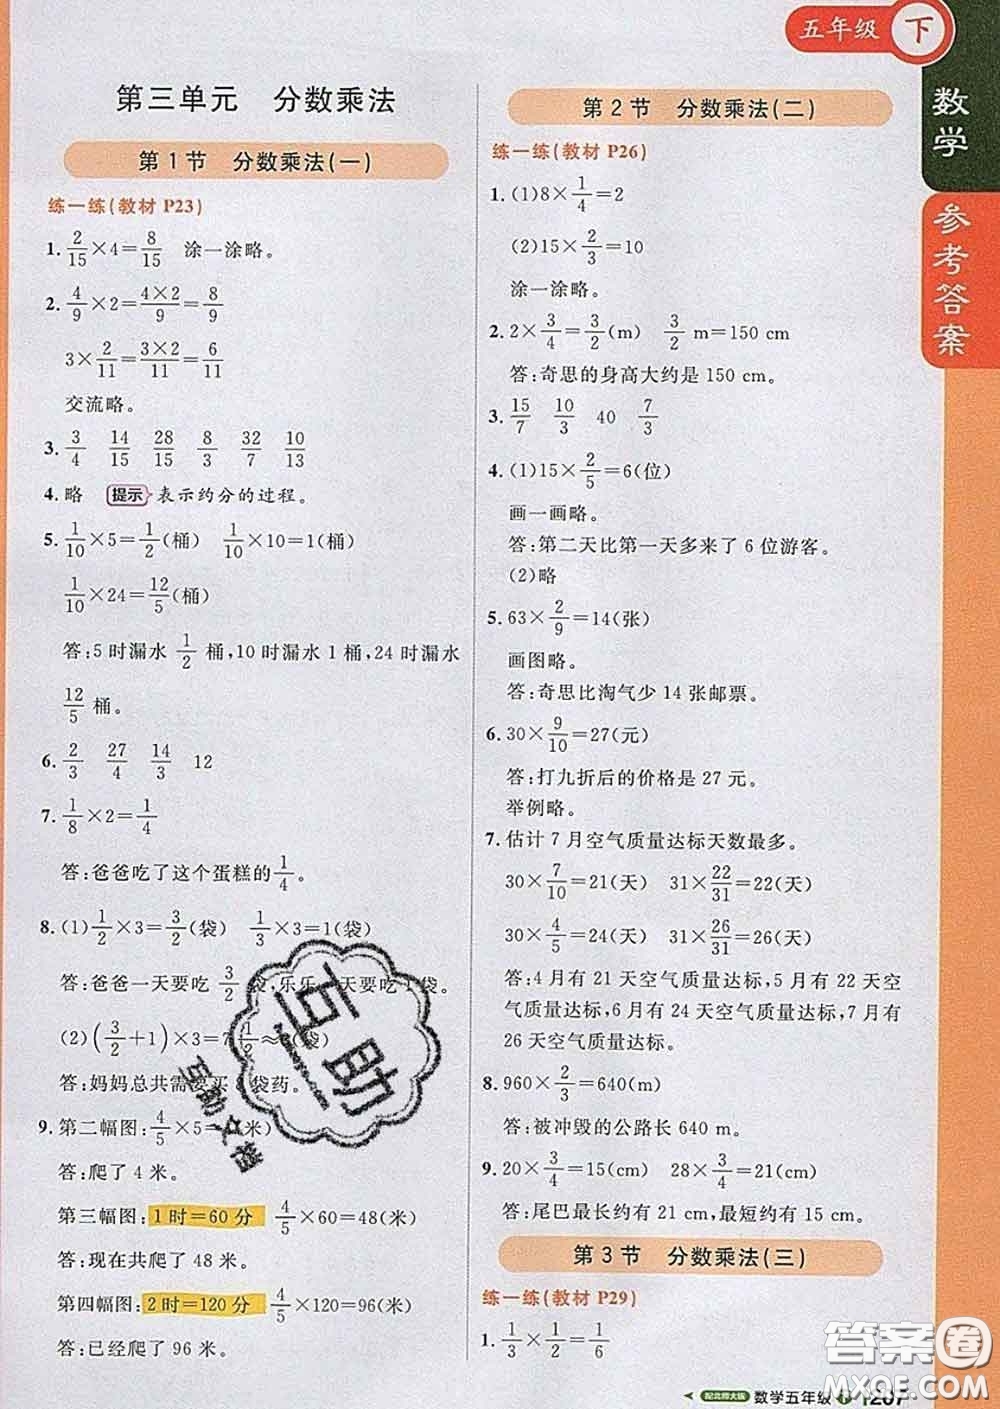 五年级 下
数学
参考答案
第三单元 分数乘法
第1节 分数乘法(一)
练一练(教材 P23)
1. 2/15×4=8/15 涂一涂略。
2. 4/9×2=4×2/9=8/9
3×2/11=3×2/11=6/11
交流略。
3. 3/4 14/15 28/15 8/3 32/7 10/13
4. 略 提示 表示约分的过程。
5. 1/10×5=1/2(桶) 1/10×10=1(桶)
1/10×24=12/5(桶)
答:5时漏水 1/2 桶,10时漏水1桶,24时漏水
12/5 桶。
6. 2/3 27/4 14/3 12
7. 1/8×2=1/4
答:爸爸吃了这个蛋糕的1/4。
8. (1)1/2×3=3/2(袋) 1/3×3=1(袋)
答:爸爸一天要吃 3/2 袋,乐乐一天要吃1袋。
(2)(3/2+1)×3=7 1/2≈8(袋)
答:妈妈总共需要买8袋药。
9. 第二幅图:4/5×5=4(米)
答:爬了4米。
第三幅图:1时=60分 4/5×60=48(米)
答:现在共爬了48米。
第四幅图:2时=120分 4/5×120=96(米)
答:已经爬了96米。
第2节 分数乘法(二)
练一练(教材 P26)
1. (1)8×1/4=2
(2)15×2/3=10
涂一涂略。
2. 2×3/4=3/2(m) 3/2 m=150 cm
答:奇思的身高大约是150 cm。
3. 15/7 10/3 40 7/3
4. (1)15×2/5=6(位)
画一画略。
答:第二天比第一天多来了6位游客。
(2)略
5. 63×2/9=14(张)
画图略。
答:奇思比淘气少14张邮票。
6. 30×9/10=27(元)
答:打九折后的价格是27元。
举例略。
7. 估计7月空气质量达标天数最多。
30×7/10=21(天) 31×22/31=22(天)
30×4/5=24(天) 31×26/31=26(天)
答:4月有21天空气质量达标,5月有22天空
气质量达标,6月有24天空气质量达标,7月有
26天空气质量达标。
8. 960×2/3=640(m)
答:被冲毁的公路长640 m。
9. 20×3/4=15(cm) 28×3/4=21(cm)
答:尾巴最长约有21 cm,最短约有15 cm。
第3节 分数乘法(三)
练一练(教材 P29)
1. 1/3×1/2=1/6
配北师大版 数学五年级 下 207
互助
互助文档
答案圈
MXQE.COM